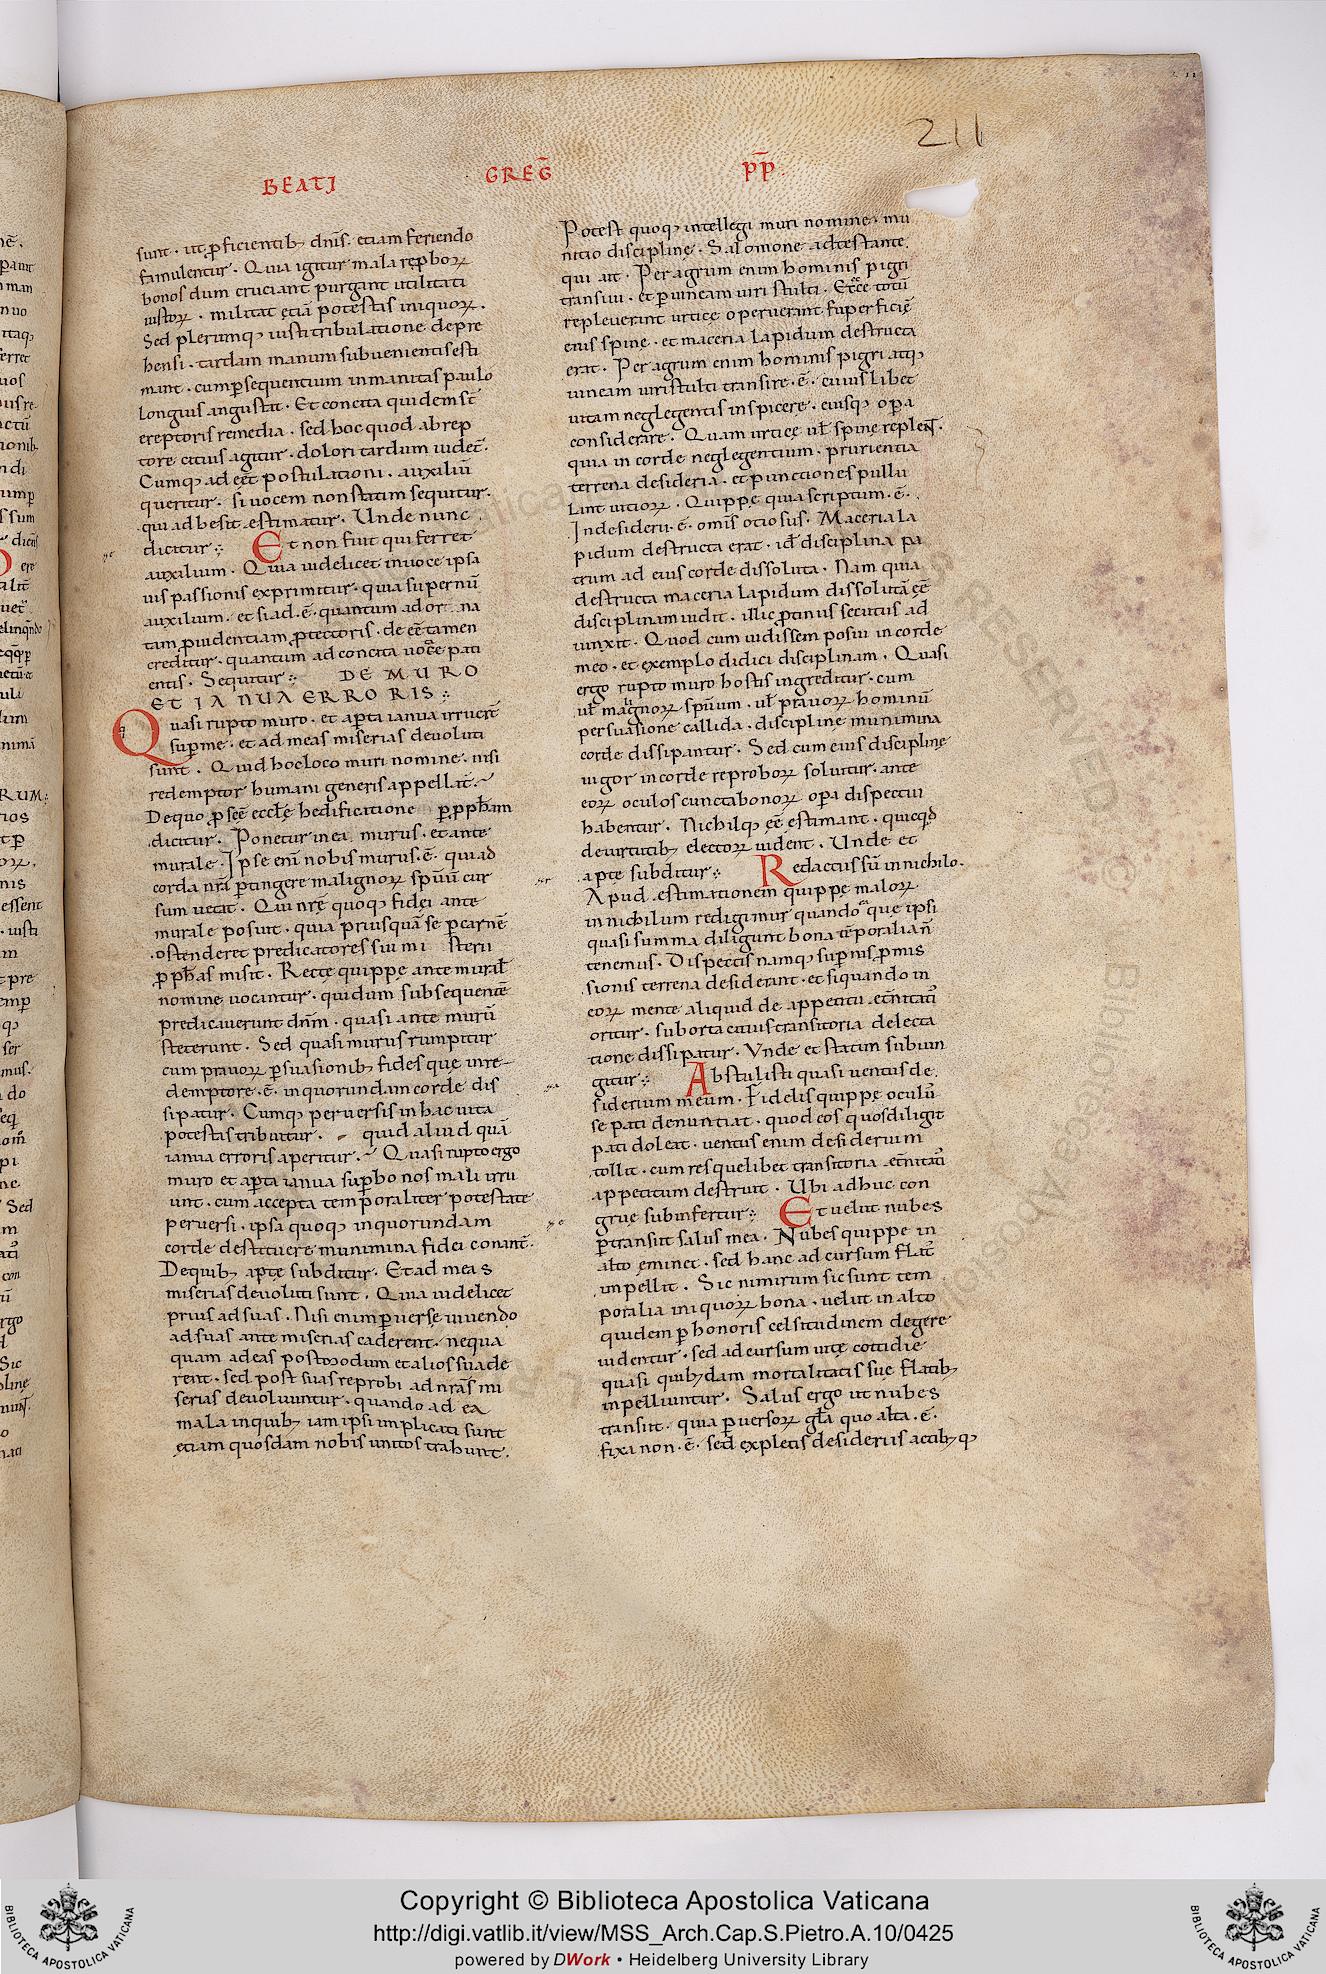 211
BEATI GREG̅ P̅P̅
sunt · ut ꝓficientib; dn̅s · etiam feriendo
famulentur · Quia igitur mala reꝓboꝝ
bonos dum cruciant purgant utilitati
iustoꝝ · militat etiā potestas iniquoꝝ ·
Sed plerumq; iusti tribulatione depre
hensi · tardam manum subuenientis esti
mant · cum ꝑsequentium inmanitas paulo
longius angustat · Et concita quidem st̅
ereptoris remedia · sed hoc quod ab rep
tore citius agitur · dolori tardum uidet̅ ·
Cumq; ad ee̅t postulationi · auxiliū
queritur · si uocem non statim sequitur ·
qui adhesit estimatur · Unde nunc
dicitur : Et non fuit qui ferret
auxilium · Quia uidelicet in uoce ipsa
uis passionis exprimitur · quia supernū
auxilium · et si ad · e̅ · quantum ad or na
tam ꝓuidentiam ꝓtectoris · de ee̅ tamen
creditur · quantum ad concita uoce pati
entis · Sequitur : DE MURO
ET IANUA ERRORIS :
Quasi rupto muro · et aꝑta ianua irruer̅t
suꝑ me · et ad meas miserias deuoluti
sunt · Quid hoc loco muri nomine · nisi
redemptor humani generis appellat̅ ·
De quo ꝓ sc̅e eccl̅ę hedificatione ꝑ ꝓph̅am
dicitur · Ponetur in ea murus · et ante
murale · Ipse eni̅ nobis murus · e̅ · qui ad
corda nr̅a ꝑtingere malignoꝝ spūū cur
sum uetat · Qui nr̅ę quoq; fidei ante
murale posuit · quia priusquā se ꝑ carnē
ostenderet predicatores sui mi sterii
ꝓph̅as misit · Recte quippe ante mural̅
nomine uocantur · qui dum subsequentē
predicauerunt dn̅m · quasi ante murū
steterunt · Sed quasi murus rumpitur
cum prauoꝝ ꝑsuasionib; fides que in re
demptore · e̅ · in quorundam corde dis
sipatur · Cumq; peruersis in hac uita
potestas tribuitur · quid aliud quā
ianua erroris aperitur · Quasi rupto ergo
muro et aꝑta ianua suꝑbo nos mali irru
unt · cum accepta temporaliter potestate
peruersi · ipsa quoq; in quorundam
corde destituere munimina fidei conant̅ ·
De quib; apte subditur · Et ad meas
miserias deuoluti sunt · Quia uidelicet
prius ad suas · Nisi enim ꝑuerse uiuendo
ad suas ante miserias caderent · nequa
quam ad eas postmodum et alios suade
rent · sed post suas reprobi ad nr̅as mi
serias deuoluuntur · quando ad ea
mala in quib; iam ipsi implicati sunt
etiam quosdam nobis unitos trahunt ·
Potest quoq; intellegi muri nomine · mu
nitio disciplinę · Salomone adtestante ·
qui ait · Per agrum enim hominis pigri
transiui · et ꝑ uineam uiri stulti · Et ecce totū
repleuerant urticę operuerant superficiē
eius spinę · et maceria lapidum destructa
erat · Per agrum enim hominis pigri atq;
uineam uiri stulti transire · e̅ · cuiuslibet
uitam neglegentis inspicere · eiusq; oꝑa
considerare · Quam urticę ul̅ spinę replen̅t ·
quia in corde neglegentium · prurientia
terrena desideria · et punctiones pullu
lant uitioꝝ · Quippe quia scriptum · e̅ ·
In desiderii · e̅ · omis̅ otiosus · Maceria la
pidum destructa erat · id̅ disciplina pa
trum ad eius corde dissoluta · Nam quia
destructa maceria lapidum dissolutā ee̅
disciplinam uidit · illic ꝓtinus secutus ad
iunxit · Quod cum uidissem posui in corde
meo · et exemplo didici disciplinam · Quasi
ergo rupto muro hostis ingreditur · cum
ul̅ malignoꝝ spūum · ul̅ prauoꝝ hominū
persuasione callida · disciplinę munimina
corde dissipantur · Sed cum eius disciplinę
uigor in corde reproboꝝ soluitur · ante
eoꝝ oculos cuncta bonoꝝ oꝑa dispectui
habentur · Nichilq; ee̅ estimant · quicq̅d
de uirtutib; electoꝝ uident · Unde et
apte subditur : Redactus sū in nichilo ·
Apud estimationem quippe maloꝝ
in nichilum redigimur quando que ipsi
quasi summa diligunt bona tēporalia n̅
tenemus · Dispectis namq; suꝑnis ꝓmis
sionis terrena desiderant · et si quando in
eoꝝ mente aliquid de appetitu et̅nitatis
oritur · suborta citius transitoria delecta
tione dissipatur · Vnde et statim subiun
gitur : Abstulisti quasi uentus de
siderium meum · Fidelis quippe oculū
se pati denuntiat · quod eos quos diligit
pati doleat · uentus enim desiderium
tollit · cum res quelibet transitoria et̅nitatis
appetitum destruit · Ubi adhuc con
grue subinfertur : Et uelut nubes
ꝑtransiit salus mea · Nubes quippe in
alto eminet · sed hanc ad cursum flat̅
impellit · Sic nimirum sic sunt tem
poralia iniquoꝝ bona · uelut in alto
quidem ꝑ honoris celsitudinem degere
uidentur · sed ad cursum uitę cottidie
quasi quib;dam mortalitatis suę flatib;
inpelluntur · Salus ergo ut nubes
transiit · quia ꝑuersoꝝ gl̅a quo alta · e̅ ·
fixa non · e̅ · sed expletis desideriis actib;q;
Copyright © Biblioteca Apostolica Vaticana
http://digi.vatlib.it/view/MSS_Arch.Cap.S.Pietro.A.10/0425
powered by DWork • Heidelberg University Library
BIBLIOTECA APOSTOLICA VATICANA
BIBLIOTECA APOSTOLICA VATICANA